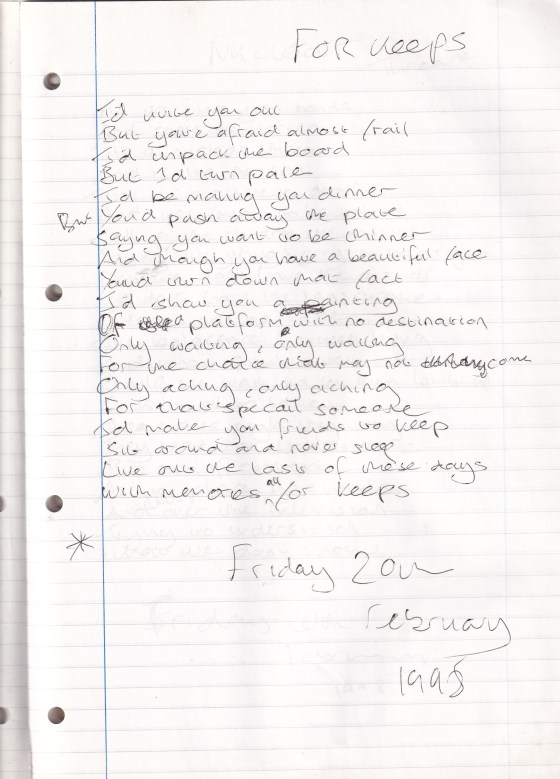 FOR KEEPS
I'd invite you out
But you're afraid almost frail
I'd unpack the board
But I'd turn pale
I'd be making you dinner
But You'd push away the plate
Saying you want to be thinner
And though you have a beautiful face
You'd turn down that fact
I'd show you a painting
Of a platform with no destination
Only waiting, only waiting
For the chance that may not come
Only aching, only aching
For that specail someone
I'd make you friends to keep
Sit around and never sleep
Live out the lasts of these days
With memories all for keeps
*
Friday 20th
February
1998